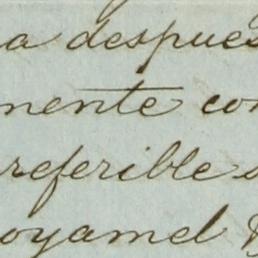 a despues
mente con
referible s
oyamel